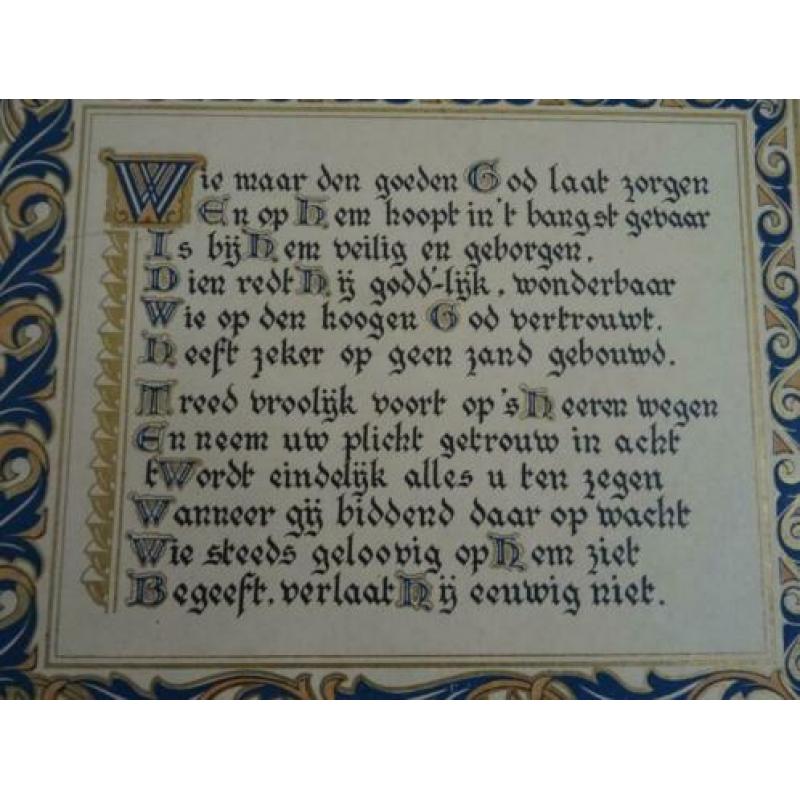 Wie maar den goeden God laat zorgen
En op Hem hoopt in't bangst gevaar
Is bij Hem veilig en geborgen,
Dien redt Hij godd-lijk, wonderbaar
Wie op den hoogen God vertrouwt,
Heeft zeker op geen zand gebouwd.
Treed vroolijk voort op 's Heeren wegen
En neem uw plicht getrouw in acht
tWordt eindelijk alles u ten zegen
Wanneer gij biddend daar op wacht
Wie steeds geloovig op Hem ziet
Begeeft, verlaat Hij eeuwig niet.